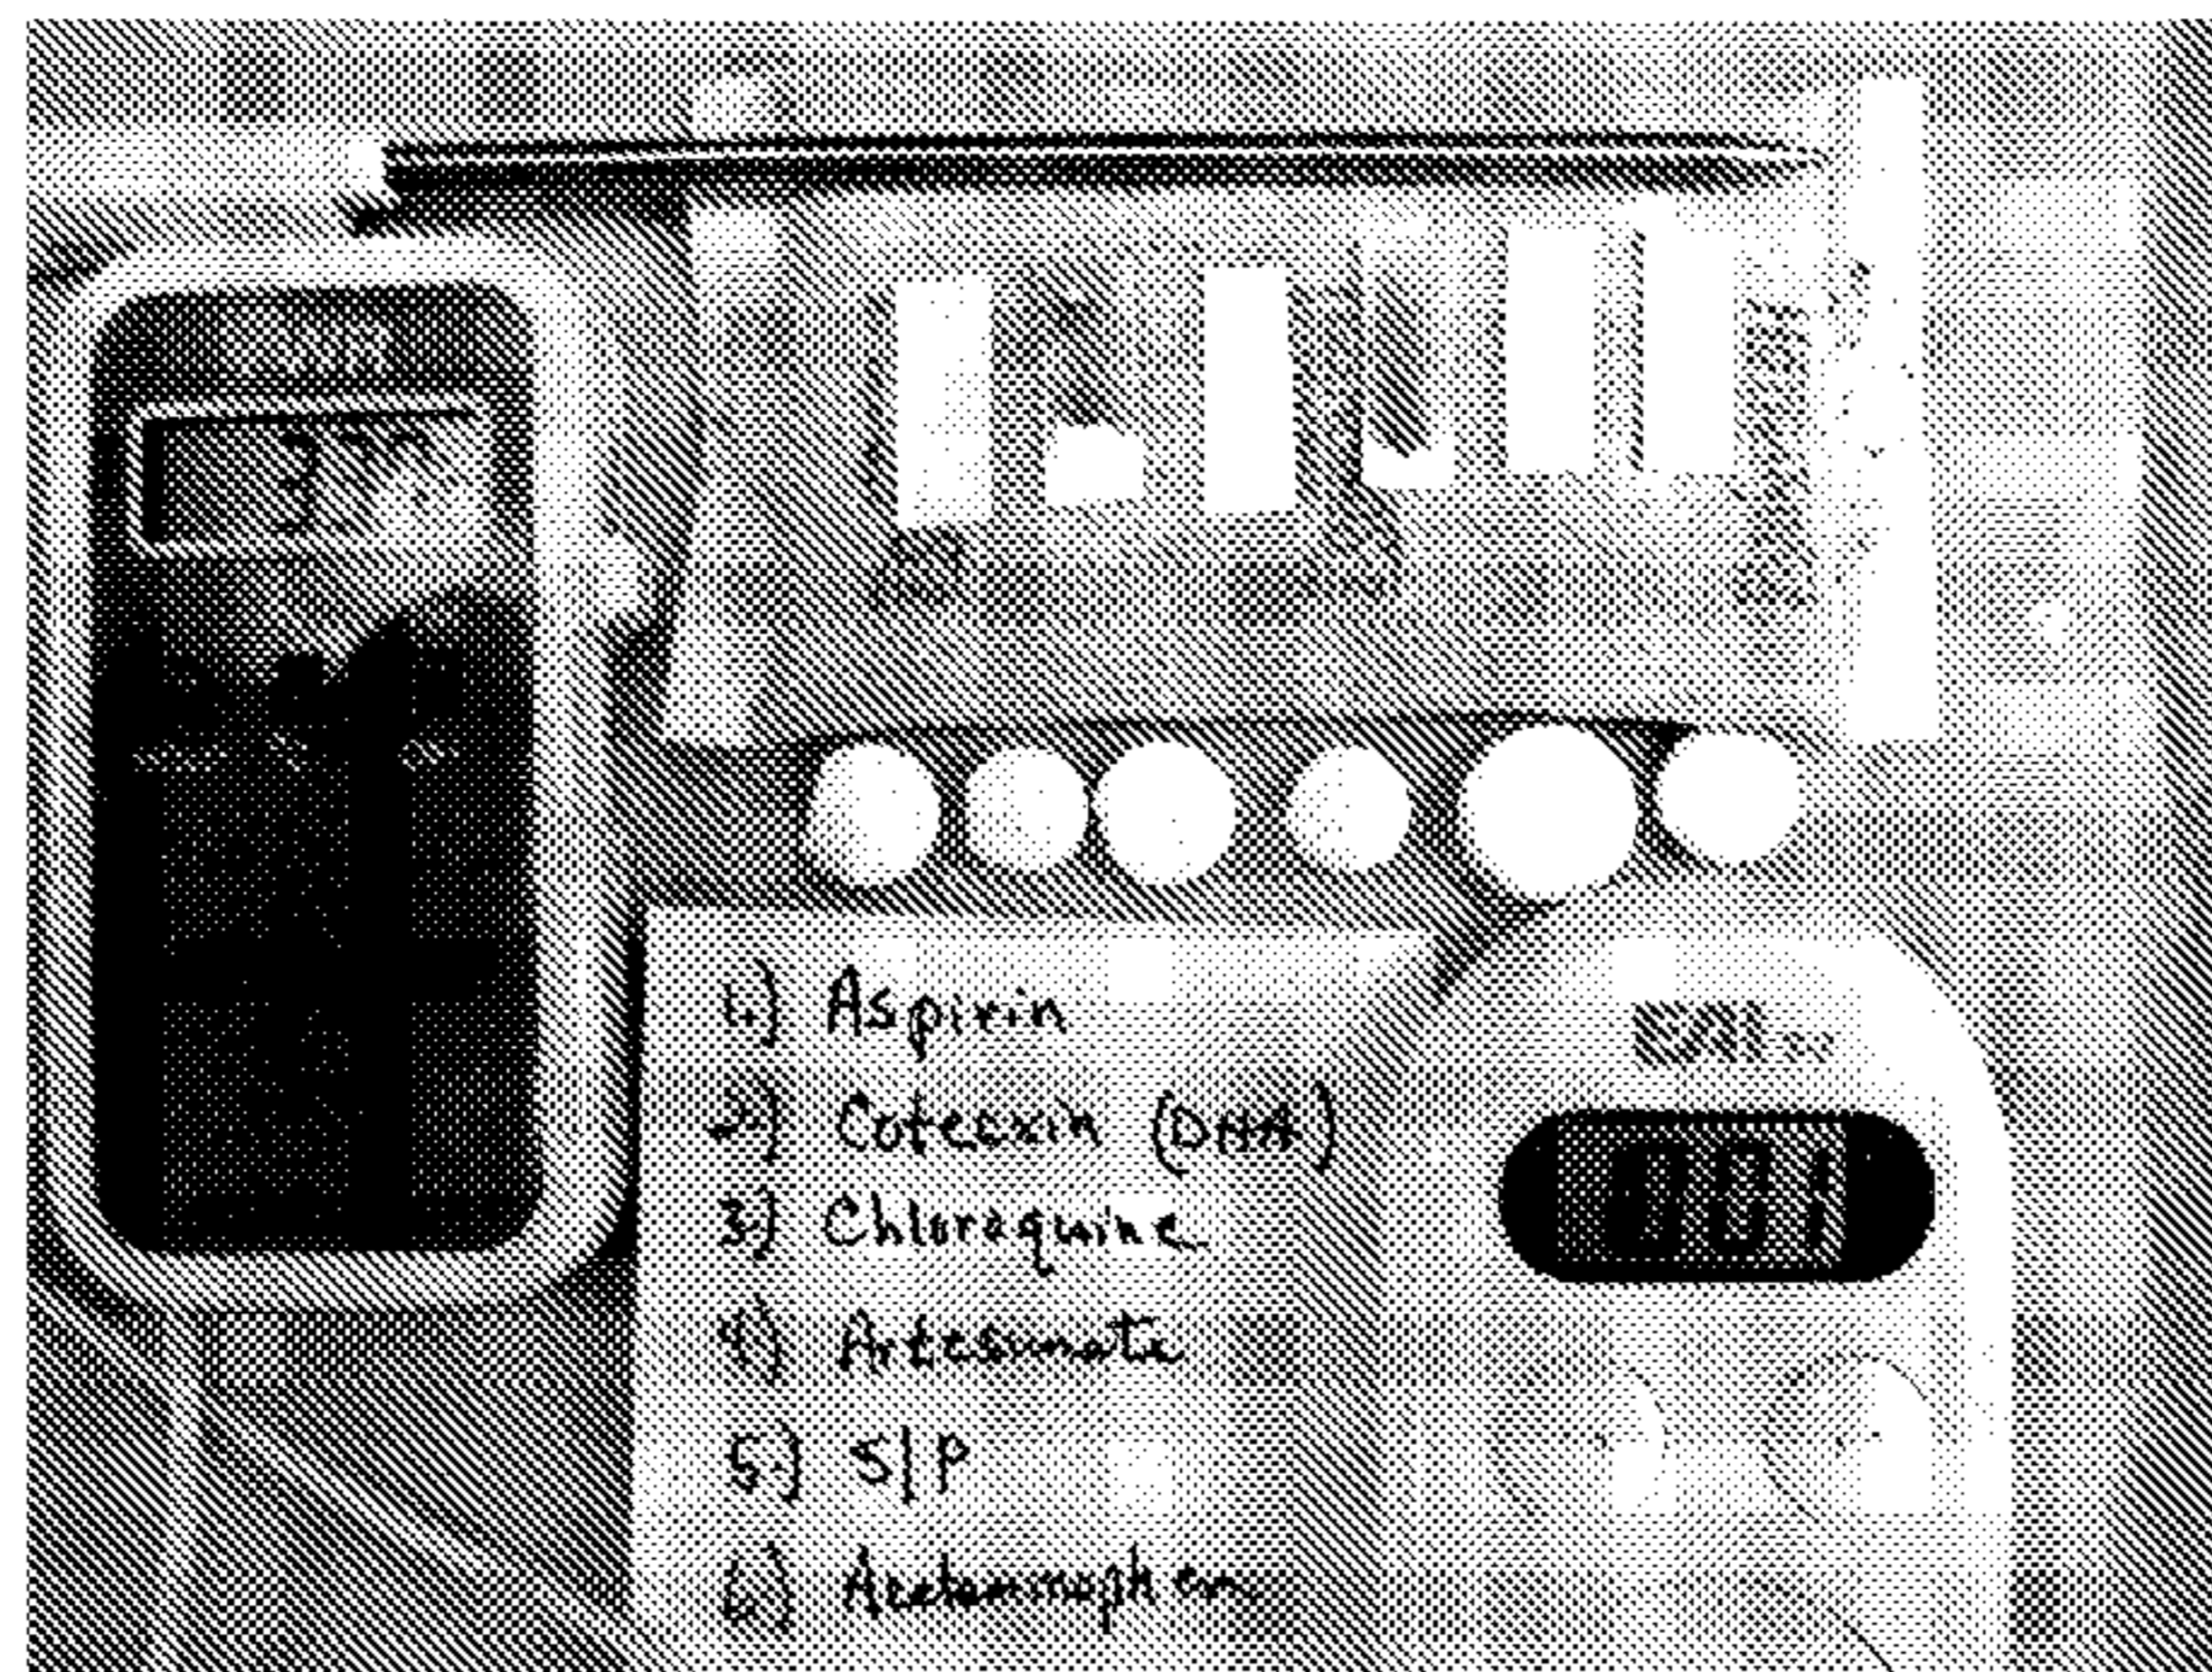 1.) Aspirin
2.) Cotecxin (DHA)
3.) Chloroquine
4.) Artesunate
5.) S/P
6.) Acetaminophen